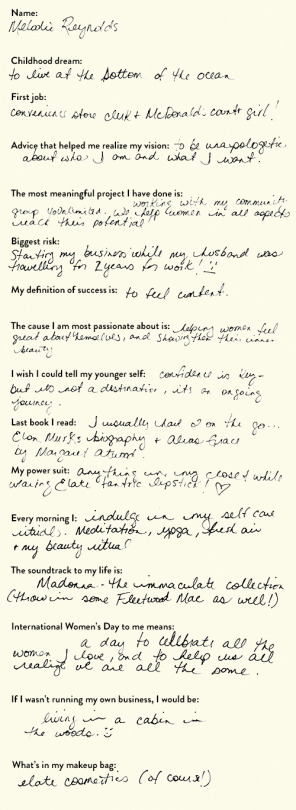 Name:
Melodie Reynolds
Childhood dream:
to live at the bottom of the ocean
First job:
convenience store clerk + McDonalds countr girl!
Advice that helped me realize my vision: to be unapologetic
about who I am and what I want.
The most meaningful project I have done is:
working with my community
group VoUnlimited. We help women in all aspects
reach their potential!
Biggest risk:
Starting my business while my husband was
travelling for 2 years for work!
My definition of success is: to feel content.
The cause I am most passionate about is: helping women feel
great about themselves, and showing them their inner
beauty
I wish I could tell my younger self: confidence is key-
but its not a destination, it's an ongoing
journey.
Last book I read: I usually have 2 on the go...
Elon Musk's biography + Alias Grace
by Margaret Atwood.
My power suit: anything in my closet while
wearing Elate tantric lipstick! ♡
Every morning I: indulge in my self care
rituals. Meditation, yoga, fresh air
+ my beauty ritual
The soundtrack to my life is:
Madonna - the immaculate collection
(throw in some Fleetwood Mac as well!)
International Women's Day to me means:
a day to celebrate all the
women I love, and to help us all
realize we are all the same.
If I wasn't running my own business, I would be:
living in a cabin in
the woods. :)
What's in my makeup bag:
elate cosmetics (of course!)